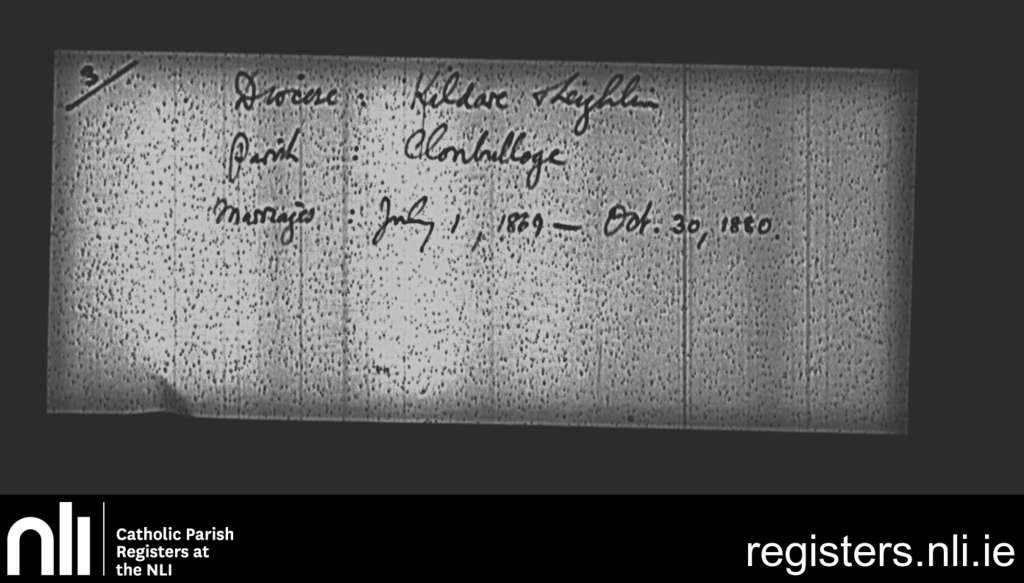 3/
Diocese : Kildare & Leighlin
Parish : Clonbulloge
Marriages : July 1, 1869 — Oct. 30, 1880.
nli
Catholic Parish
Registers at
the NLI
registers.nli.ie